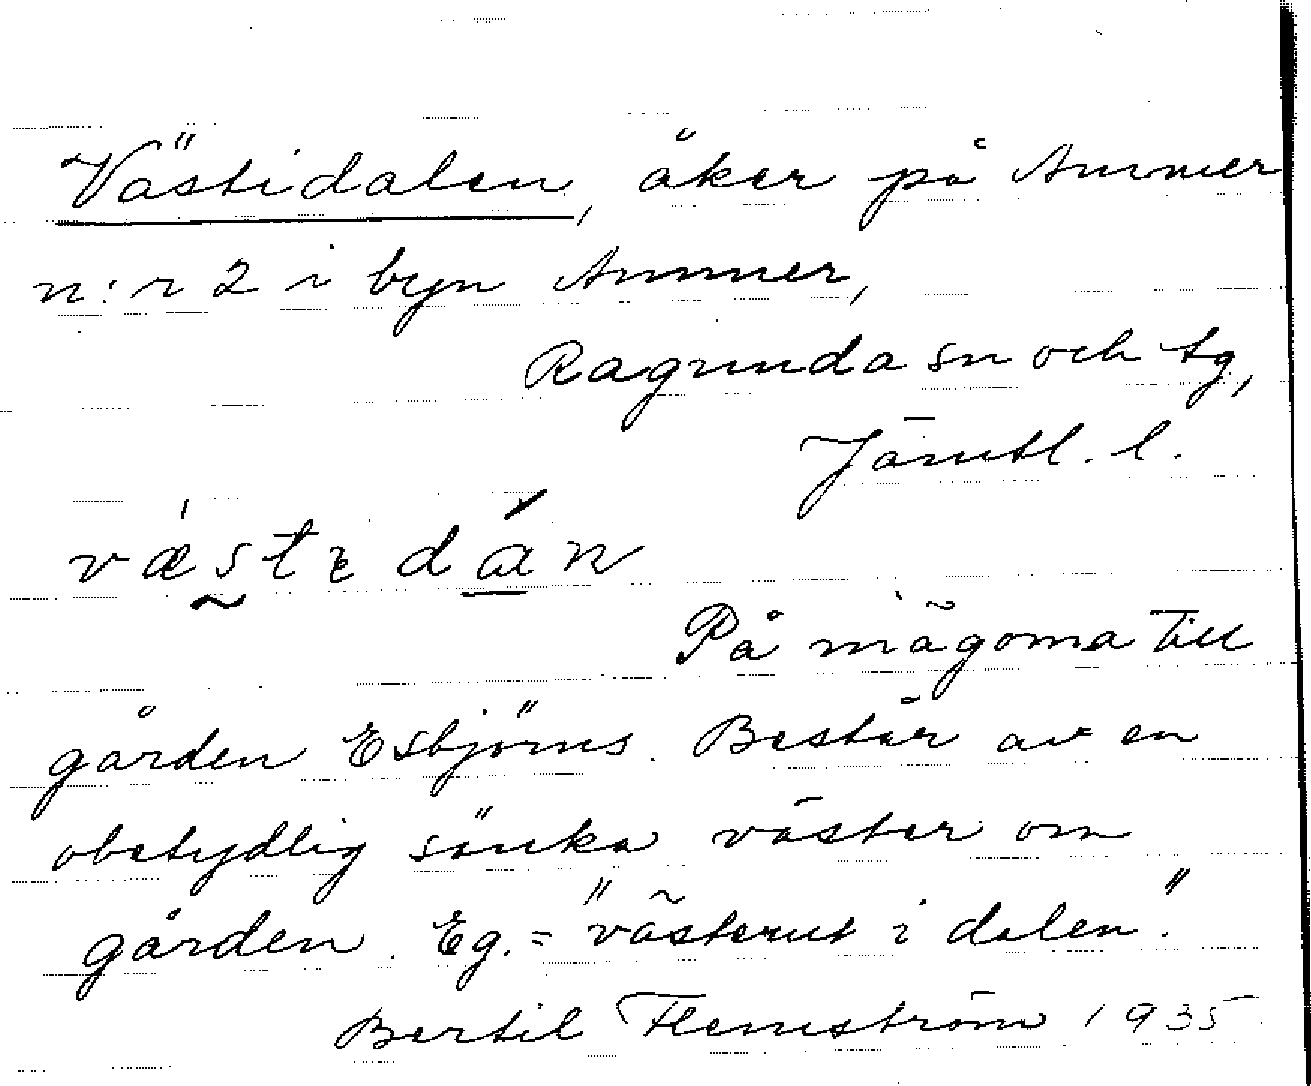 Västidalen, åker på Ammer
n:r 2 i byn Ammer,
Ragunda sn och tg,
Jämtl. l.
væ̍stɩdán
På inägorna till
gården Esbjörns. Består av en
obetydlig sänka väster om
gården. Eg. = "västerut i dalen".
Bertil Flemström 1935